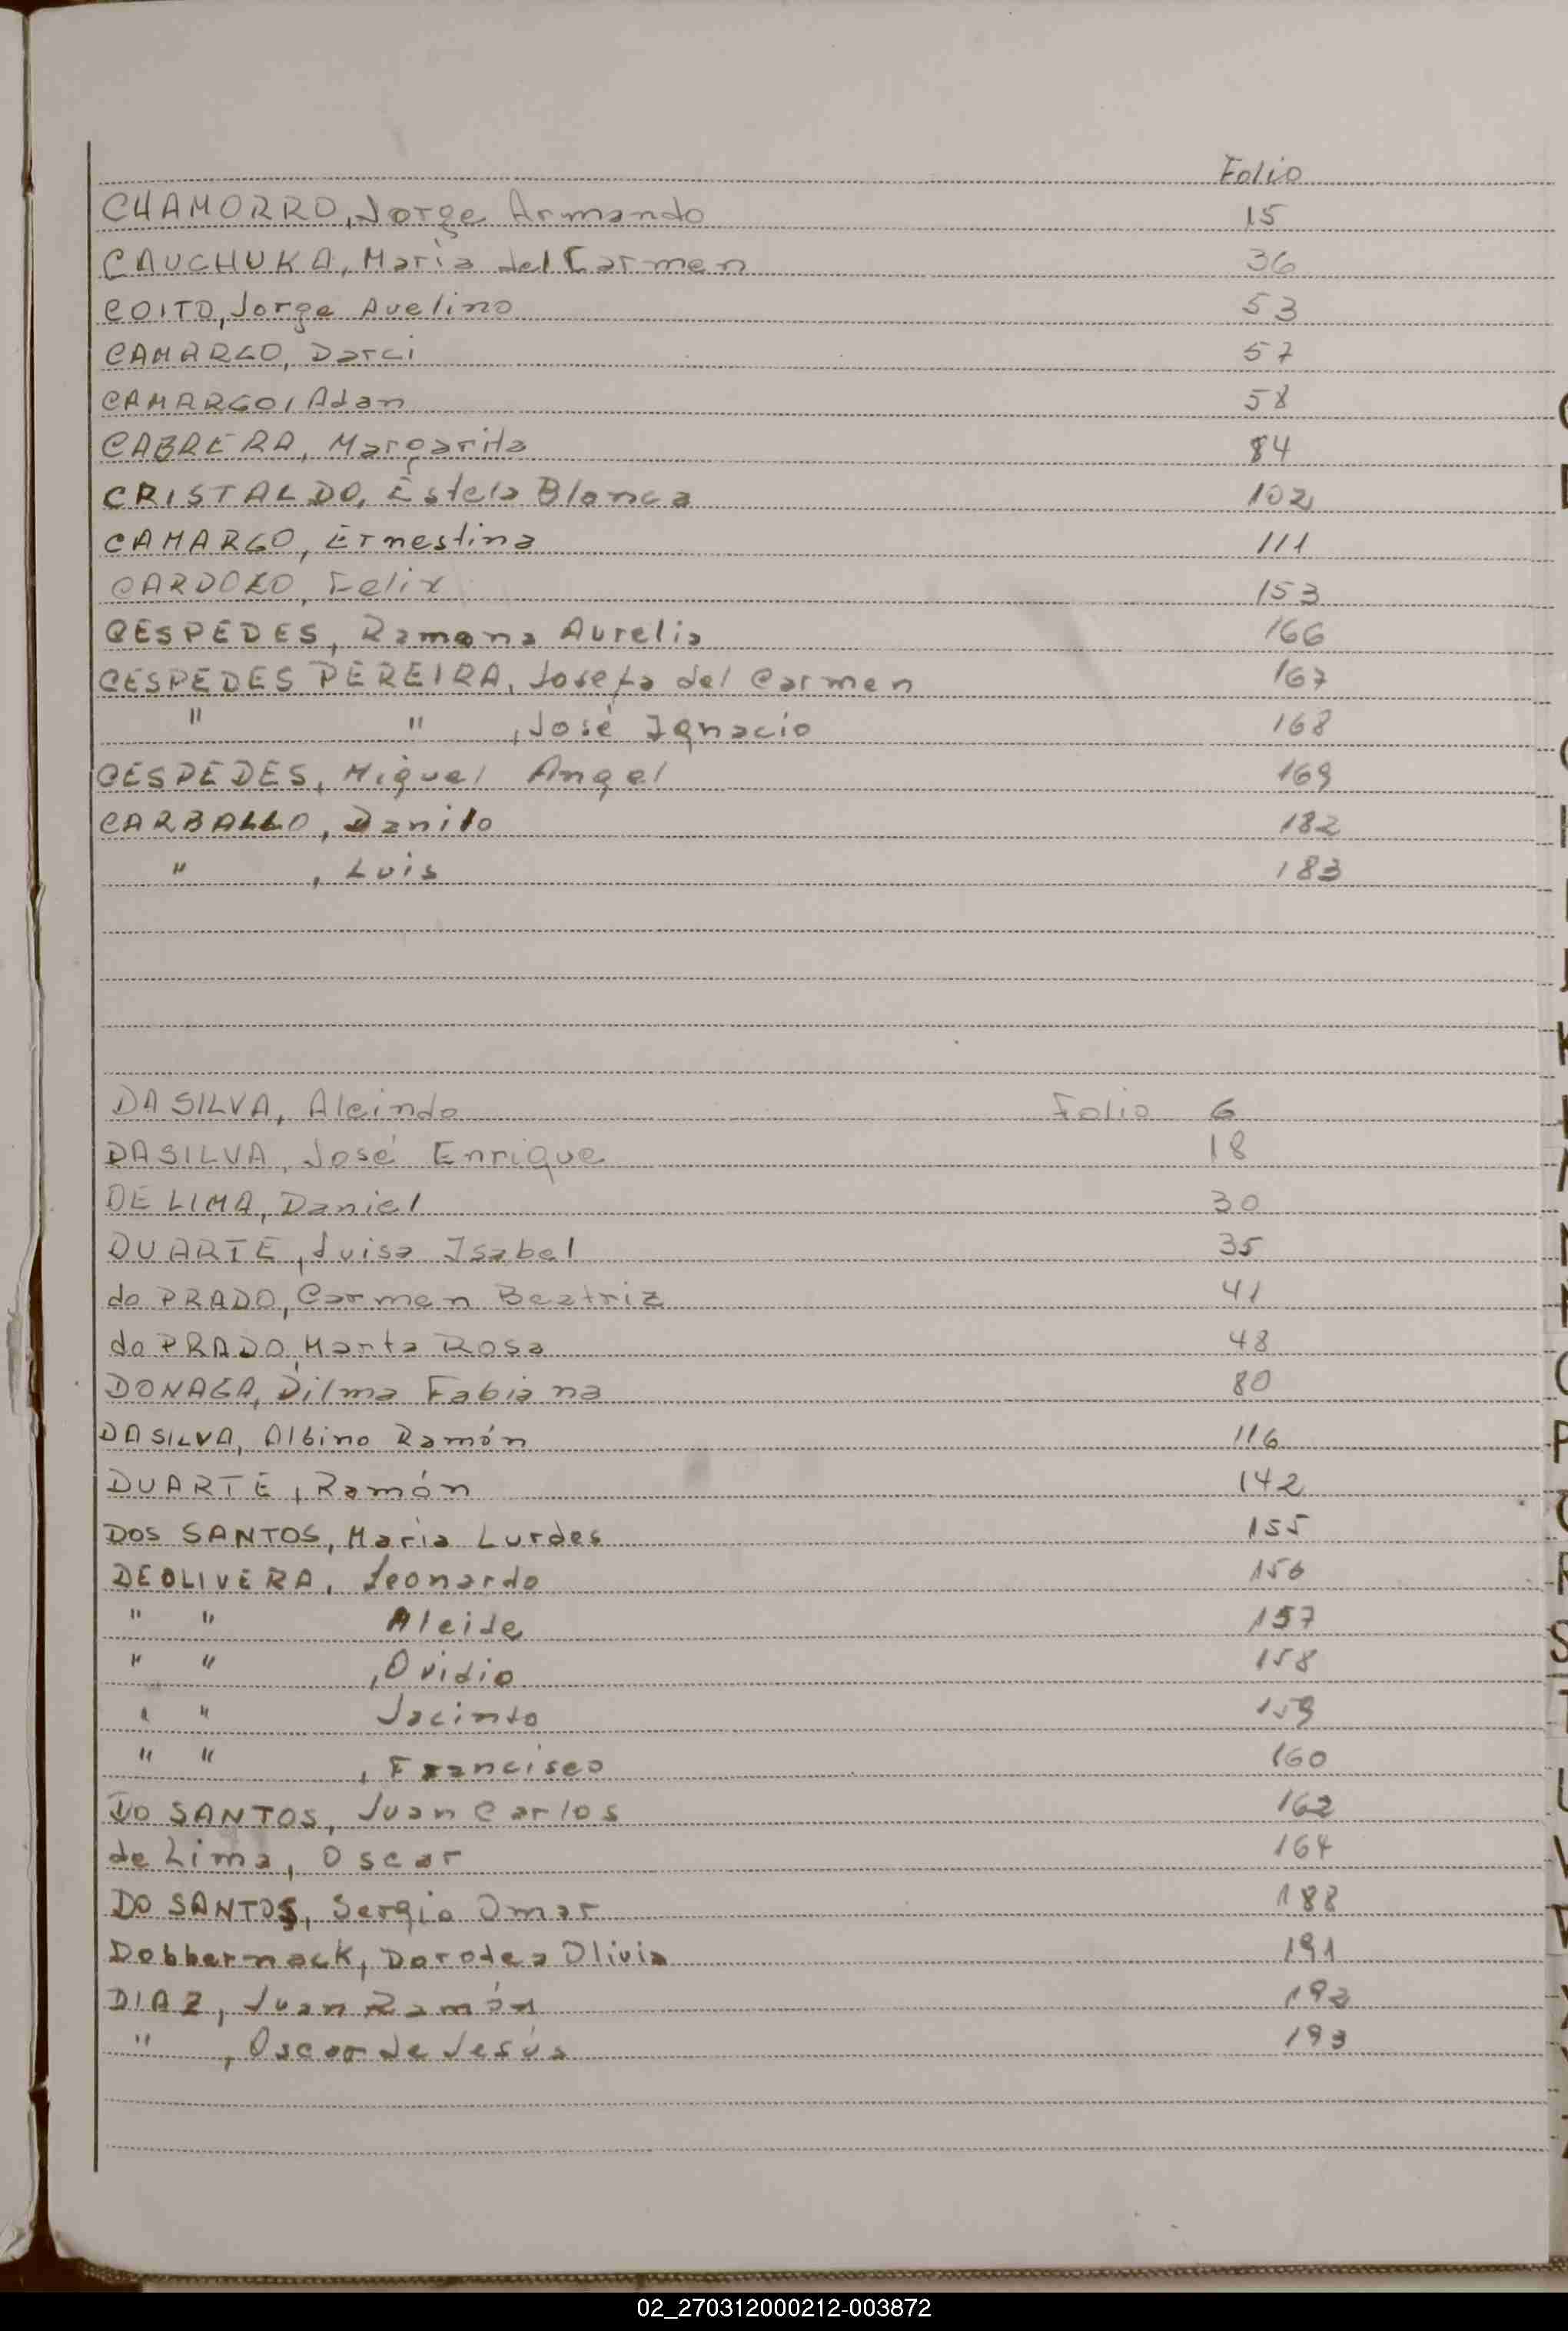 Folio
CHAMORRO, Jorge Armando 15
CAUCHUKA, María del Carmen 36
COITO, Jorge Avelino 53
CAMARGO, Darci 57
CAMARGO, Adan 58
CABRERA, Margarita 84
CRISTALDO, Estela Blanca 102
CAMARGO, Ernestina 111
CARDOZO, Felix 153
CESPEDES, Ramona Aurelia 166
CESPEDES PEREIRA, Josefa del Carmen 167
" " , José Ignacio 168
CESPEDES, Miguel Angel 169
CARBALLO, Danilo 182
" , Luis 183
DA SILVA, Alcindo Folio 6
DASILVA, José Enrique 18
DE LIMA, Daniel 30
DUARTE, Luisa Isabel 35
do PRADO, Carmen Beatriz 41
do PRADO, Marta Rosa 48
DONAGA, Dilma Fabiana 80
DASILVA, Albino Ramón 116
DUARTE, Ramón 142
DOS SANTOS, María Lurdes 155
DEOLIVERA, Leonardo 156
" " Aleide 157
" " , Ovidio 158
" " Jacinto 159
" " , Francisco 160
DO SANTOS, Juan Carlos 162
de Lima, Oscar 164
DO SANTOS, Sergio Omar 188
Dobbernack, Dorotea Olivia 191
DIAZ, Juan Ramón 192
" , Oscar de Jesús 193
02_270312000212-003872